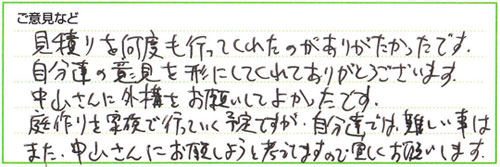 ご意見など
見積りを何度も行ってくれたのがありがたかったです.
自分達の意見を形にしてくれてありがとうございます.
中山さんに外構をお願いしてよかったです.
庭作りを家族で行っていく予定ですが、自分達では、難しい事は
また、中山さんにお願しようと考えてますので宜しくお願いします.